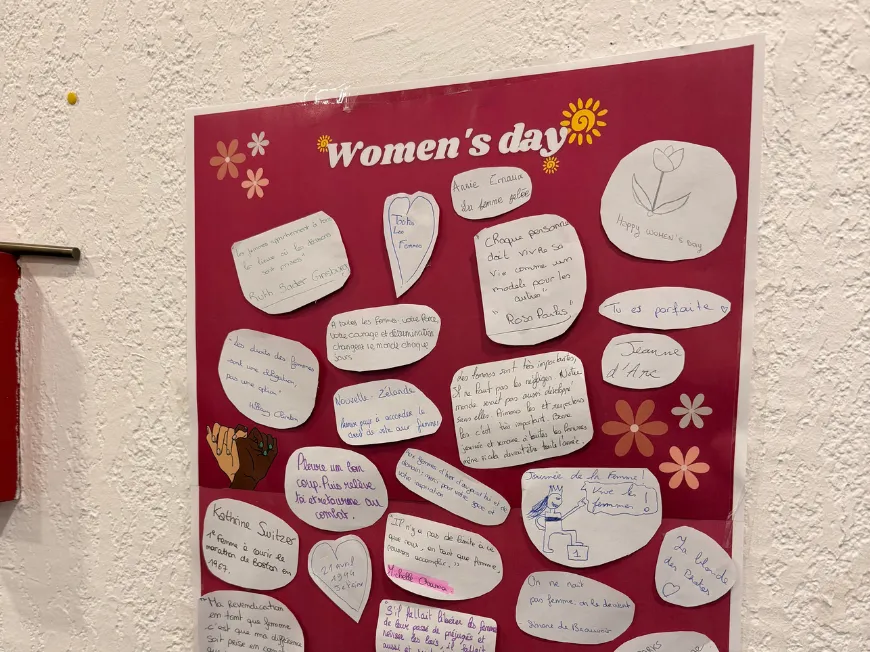 Women's day
Annie Ernaux
La femme gelée
Happy WOMEN'S DAY
Toutes
Les
Femmes
"Les femmes appartiennent à tous
les lieux où les décisions
sont prises"
Ruth Bader Ginsburg
"Chaque personne
doit vivre sa
vie comme un
modèle pour les
autres"
" Rosa Parks"
Tu es parfaite
A toutes les femmes: votre force,
votre courage et détermination
changera le monde chaque
jours
Jeanne
d'Arc
"Les droits des femmes
sont une obligation,
pas une option"
Hillary Clinton
Nouvelle-Zélande
premier pays à accorder le
droit de vote aux femmes
Les femmes sont très importantes,
il ne faut pas les négliger. Notre
monde serait pas aussi développé
sans elles. Aimons les et respectons
les c'est très important. Bonne
journée et semaine à toutes les femmes
même si cela devrait être toute l'année.
Pleure un bon
coup. Puis relève
toi et retourne au
combat.
Aux femmes d'hier d'aujourd'hui et de
demain: merci pour votre force et
votre inspiration
Journée de la Femme!
Vive les
femmes!
1
Kathrine Switzer
1e femme à courir le
marathon de Boston en
1967.
21 avril
1944
"Il n'y a pas de limite à ce
que nous, en tant que femmes,
pouvons accomplir."
Michelle Obama
La blonde
des Chates
On ne nait
pas femme. on le devient
Simone de Beauvoir
"Ma Revendication
en tant que femme
c'est que ma différence
soit prise en compte
S'il fallait libérer les femmes
de leur passé de préjugés et
réviser les lois, il fallait
aussi